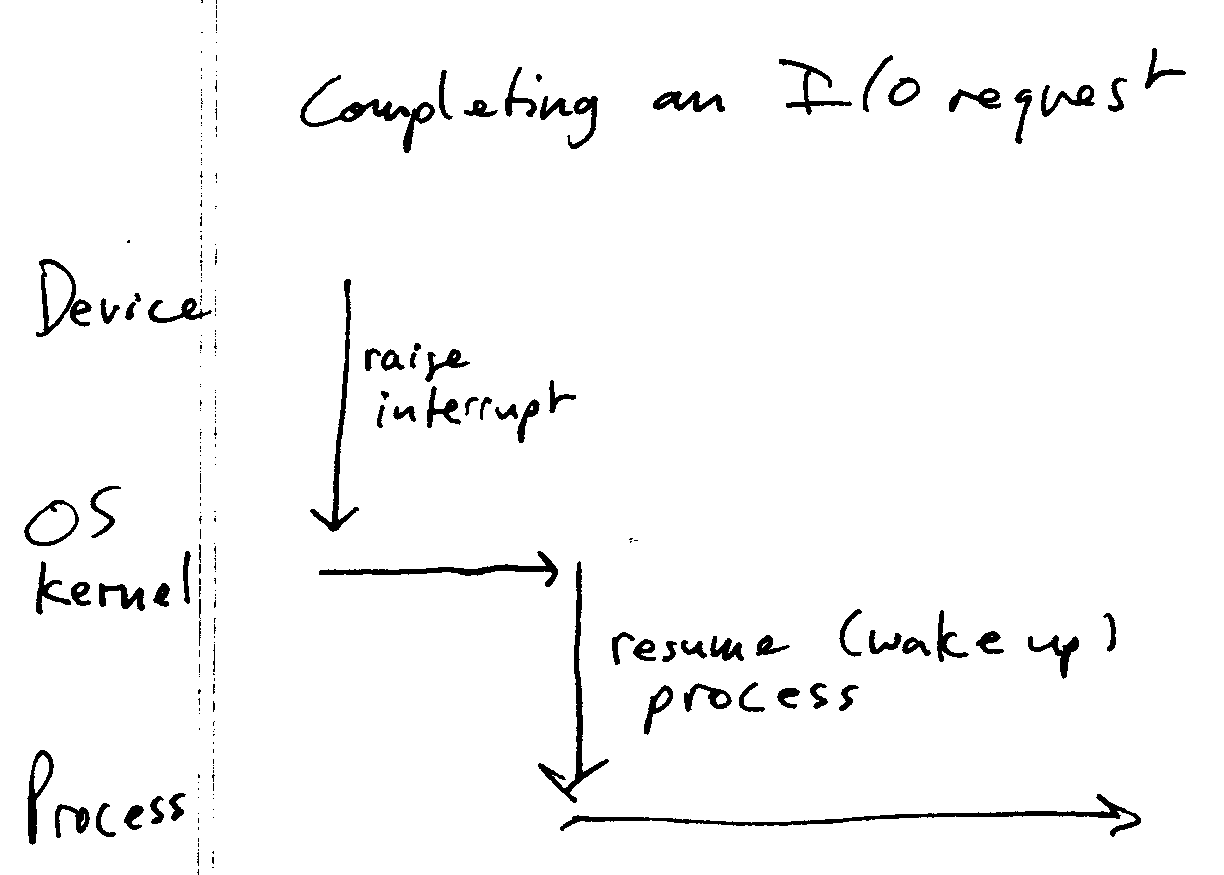 Completing an I/O request
Device
raise
interrupt
OS
kernel
resume (wake up)
process
Process